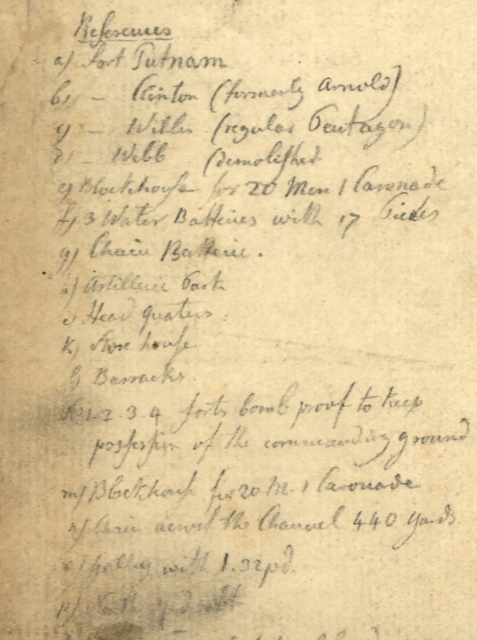 References
a) Fort Putnam
b) — Clinton (formerly Arnold)
c) — Willis (regular Pentagon)
d) — Webb (demolished
e) Blockhouse for 20 Men 1 Caronade
f) 3 Water Batteries with 17 Pieces
g) Chain Batterie.
h) Artillerie Park
i) Head quaters
k) Store house
l) Barracks
1. 2. 3. 4 forts bomb proof to keep
possession of the commanding ground
m) Blockhouse for 20 M. 1 Caronade
n) Chain across the Channel 440 yards.
o) Galley with 1. 32pd.
p)